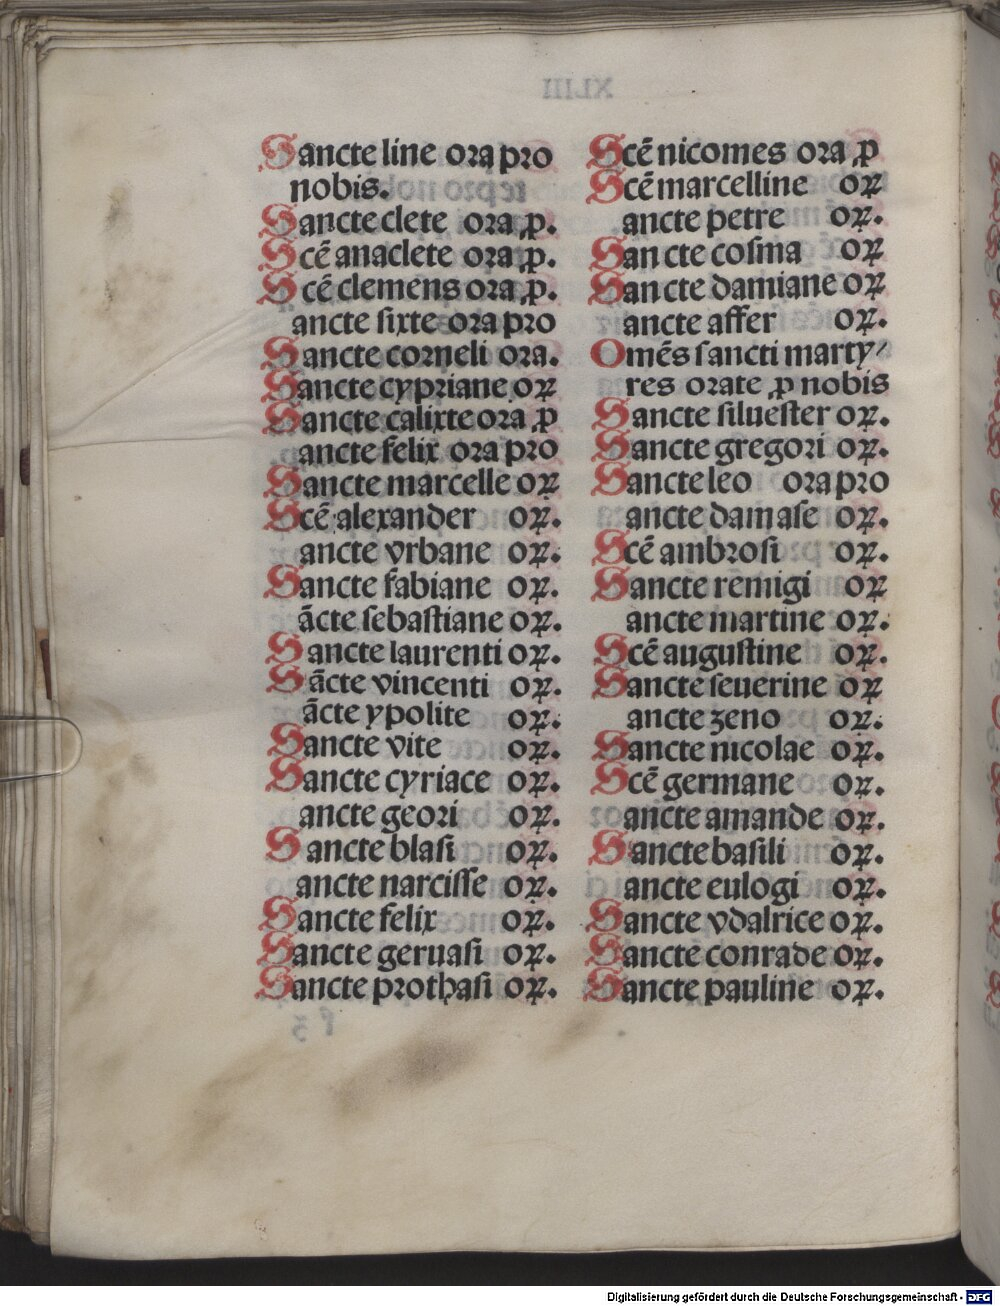 Sancte line ora pro
nobis.
Sancte clete ora ꝓ.
Scē anaclete ora ꝓ.
Scē clemens ora ꝓ.
ancte ſixte ora pro
Sancte corneli ora.
Sancte cypriane oꝝ
Sancte calixte ora ꝓ
ancte felix ora pro
Sancte marcelle oꝝ
Scē alexander oꝝ.
ancte vrbane oꝝ.
Sancte fabiane oꝝ.
ācte ſebaſtiane oꝝ.
Sancte laurenti oꝝ.
Sācte vincenti oꝝ.
ācte ypolite oꝝ.
Sancte vite oꝝ.
Sancte cyriace oꝝ.
ancte geori oꝝ.
Sancte blaſi oꝝ.
ancte narciſſe oꝝ.
Sancte felix oꝝ.
Sancte geruaſi oꝝ.
Sancte prothaſi oꝝ.
Scē nicomes ora ꝓ
Scē marcelline oꝝ
ancte petre oꝝ.
Sancte coſma oꝝ
Sancte damiane oꝝ
ancte affer oꝝ.
Omēs ſancti marty⸗
res orate ꝓ nobis
Sancte ſilueſter oꝝ.
Sancte gregori oꝝ.
Sancte leo ora pro
ancte damaſe oꝝ.
Scē ambroſi oꝝ.
Sancte remigi oꝝ
ancte martine oꝝ.
Scē auguſtine oꝝ.
Sancte ſeuerine oꝝ
ancte zeno oꝝ.
Sancte nicolae oꝝ.
Scē germane oꝝ.
ancte amande oꝝ.
Sancte baſili oꝝ.
ancte eulogi oꝝ.
Sancte vdalrice oꝝ.
Sancte conrade oꝝ.
Sancte pauline oꝝ.
Digitalisierung gefördert durch die Deutsche Forschungsgemeinschaft - DFG